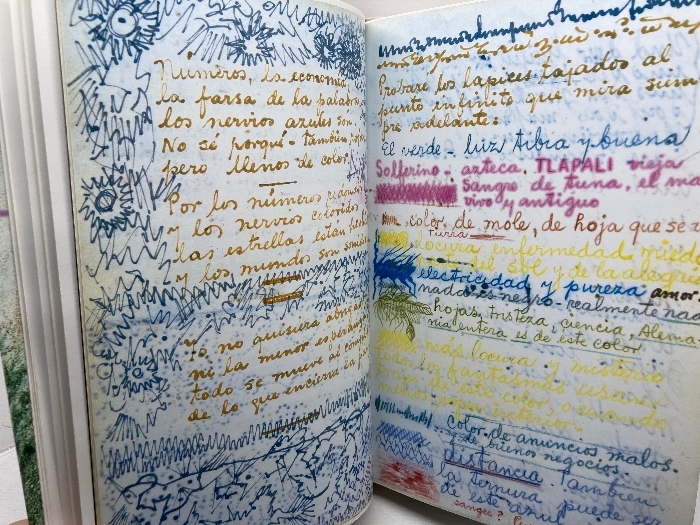 Números, la economía
la farsa de la palabra,
los nervios azules son.
No sé porqué - también
pero llenos de color.
Por los números
y los nervios colorid
las estrellas están
y los mundos son
Yo no quisiera
ni la menor esperan
todo se mueve al comp
de lo que encierra
Probare los lapices tajados al
punto infinito que mira siem
pre adelante:
El verde - luz tibia y buena
Solferino - azteca. TLAPALI vieja
sangre de tuna, el ma
vivo y antiguo
color de mole, de hoja que se
tierra
locura enfermedad miedo
del sol y de la alegría
electricidad y pureza amor
nada es negro - realmente nad
hojas, tristeza, ciencia, Alema-
nia entera es de este color
más locura y misterio
todos los fantasmas usan
de este color, o
color de anuncios malos.
de buenos negocios.
distancia. También
la ternura puede se
de este azul
sangre?